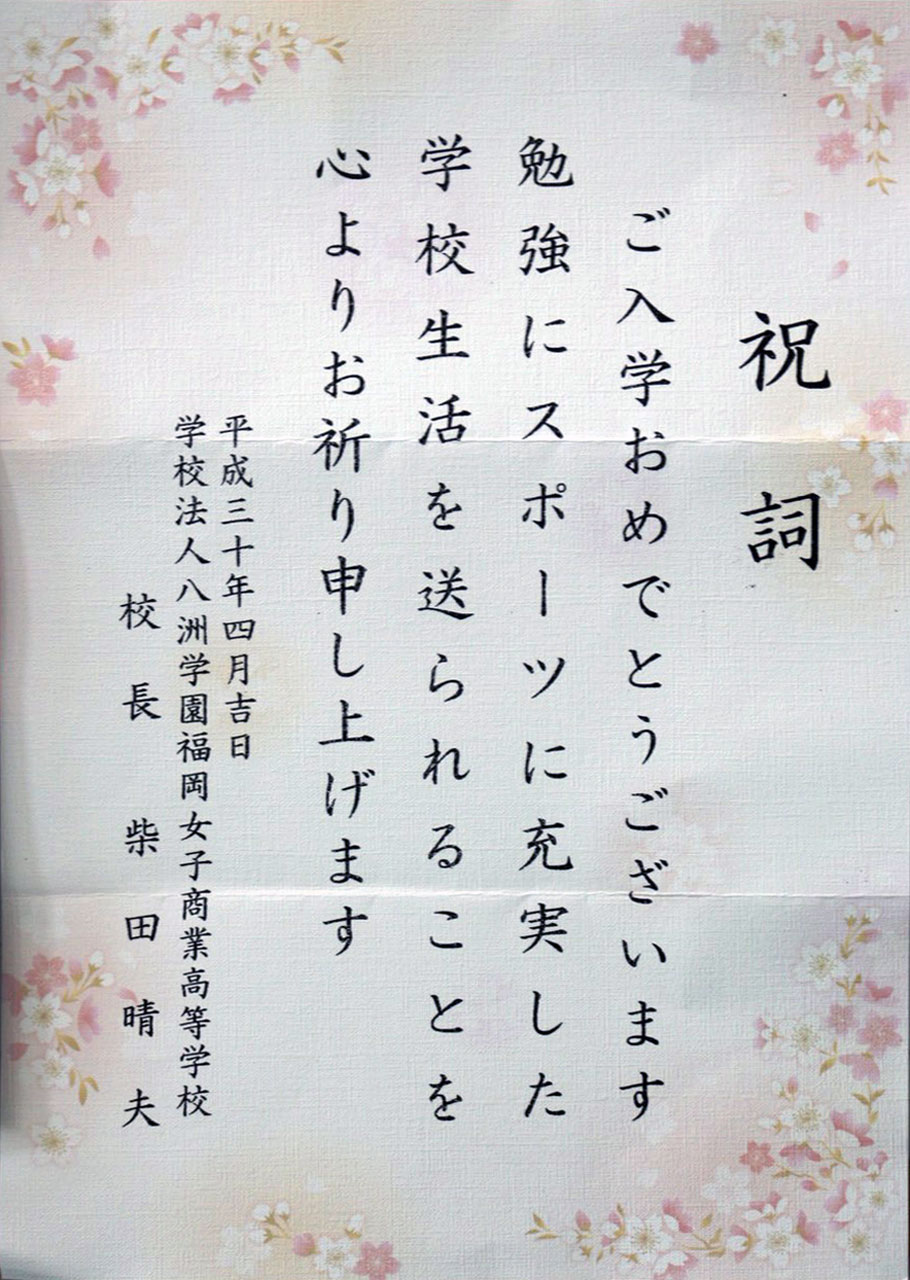 祝詞
ご入学おめでとうございます
勉強にスポーツに充実した
学校生活を送られることを
心よりお祈り申し上げます
平成三十年四月吉日
学校法人八洲学園福岡女子商業高等学校
校長 柴田晴夫